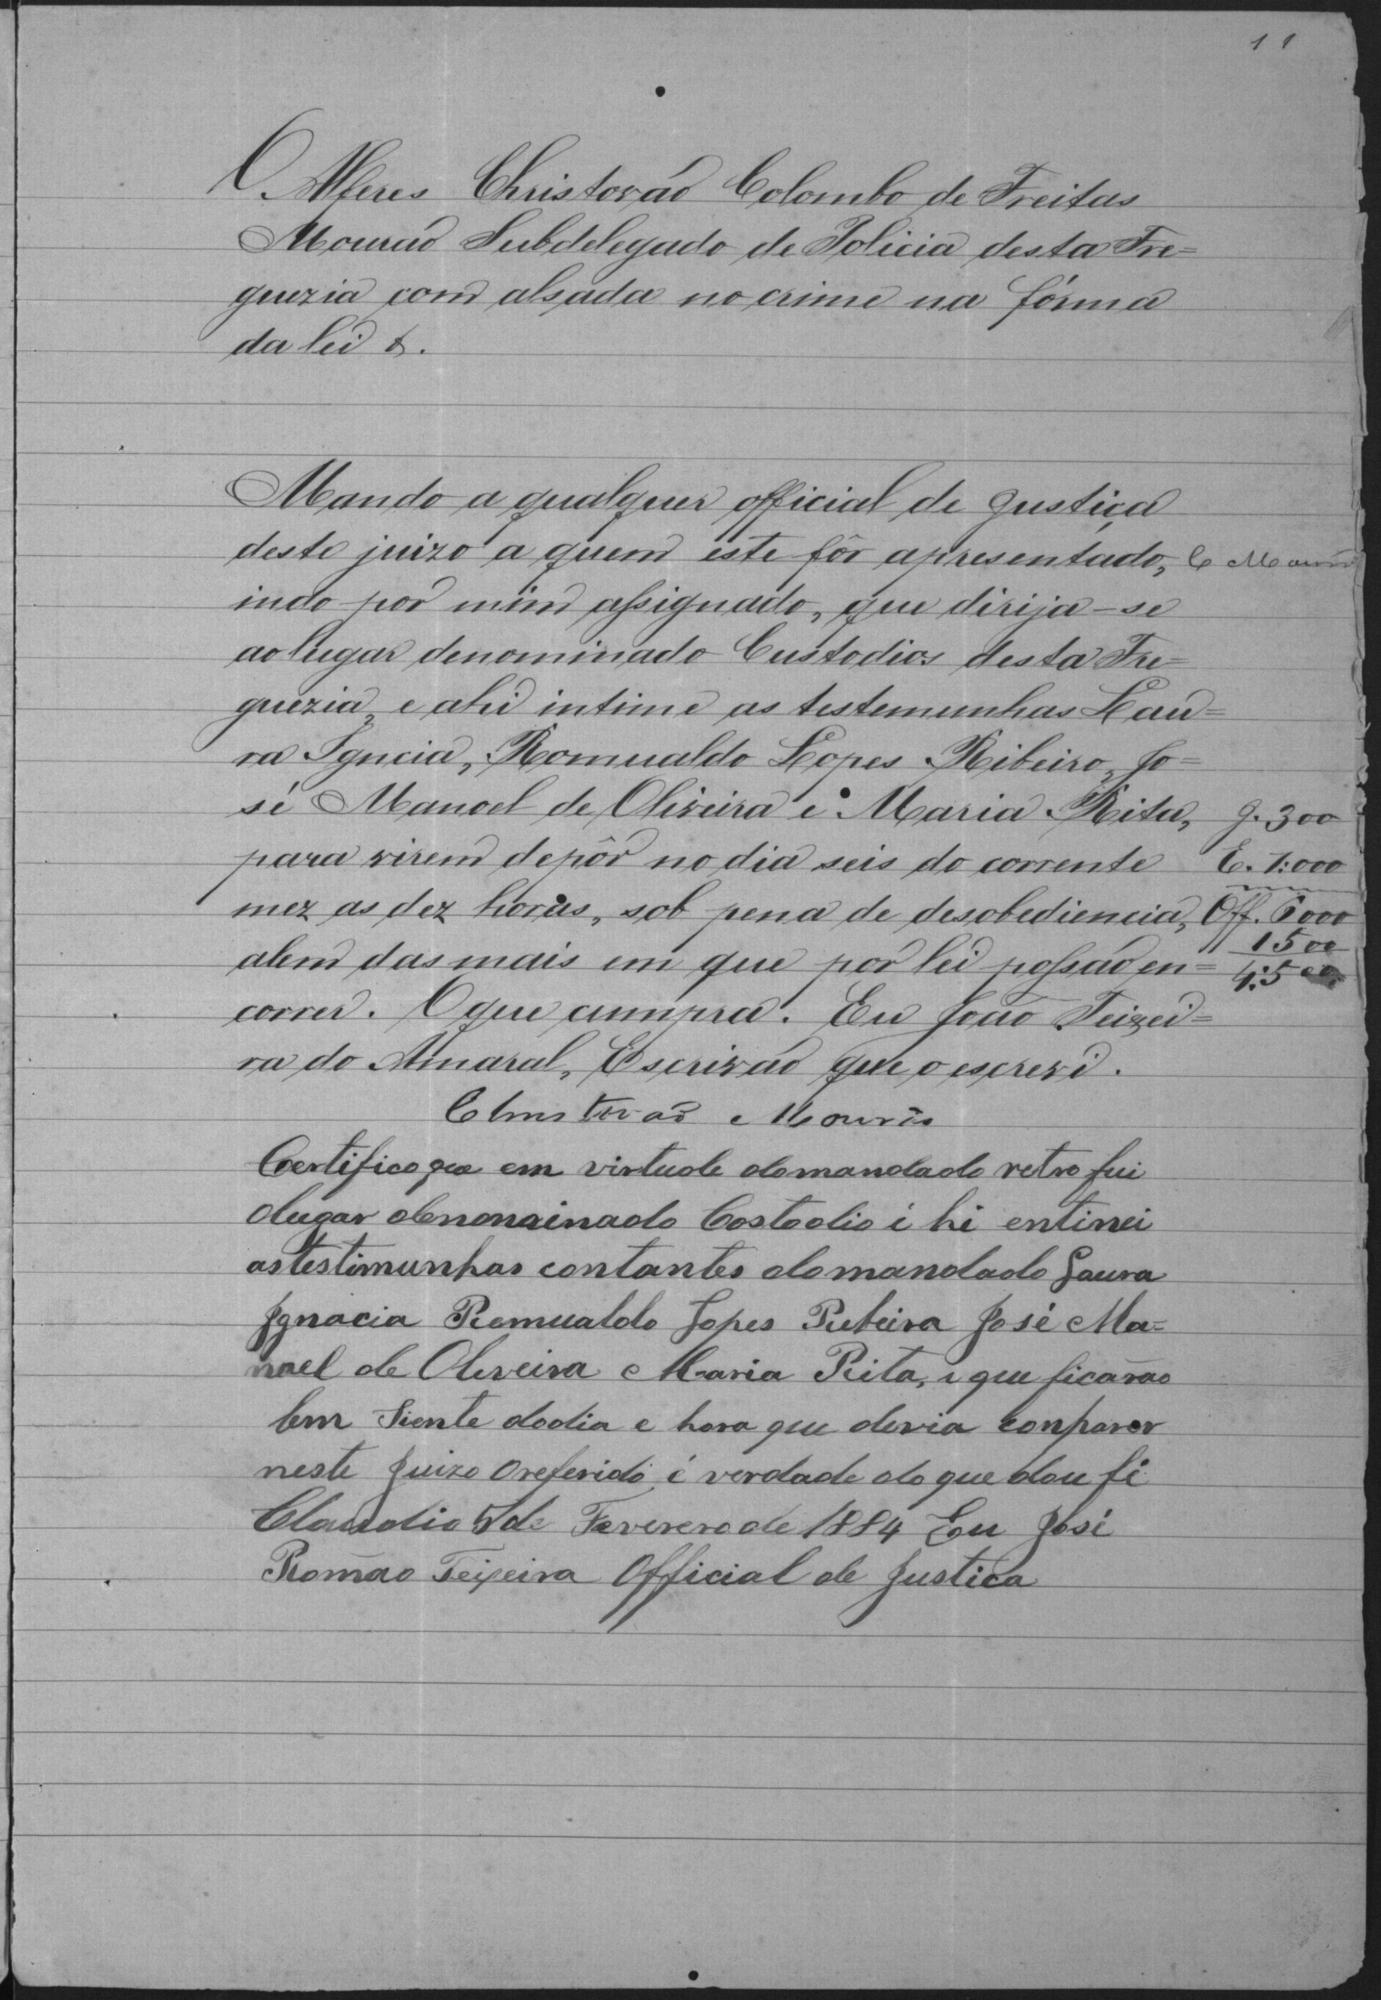 11
O Alferes Christovão Colombo de Freitas
Mourão Subdelegado de Policia desta Fre=
guezia com alsada no crime na fórma
da lei &.
Mando a qualquer official de justiça
deste juizo a quem este fôr apresentado, C Mourão
indo por mim assignado, que dirija-se
ao lugar denominado Custodios desta Fre=
guezia, e ahi intime as testemunhas Lau=
ra Igncia, Romualdo Lopes Ribeiro, Jo=
sé Manoel de Oliveira e Maria Rita, J. 300
para virem depôr no dia seis do corrente E. 1:000
mez as dez horas, sob pena de desobediencia, Off.
alem das mais em que por lei possão en= 1500
correr. O que cumpra. Eu João Teixei=
ra do Amaral, Escrivão que o escrevi.
Christovão Mourão
Certifico que em virtude do mandado retro fui
o lugar denominado Costodio i hi entimei
as testimunhas contantes do mandado Laura
Ignacia Romualdo Lopes Ribeira José Ma=
noel de Oliveira e Maria Rita, e que ficarão
bem Siente do dia e hora que devia conparer
neste Juizo O referido é verdade do que dou fé
Claudio 5 de Fevrero de 1884 Eu José
Romão Teixeira Official de Justica